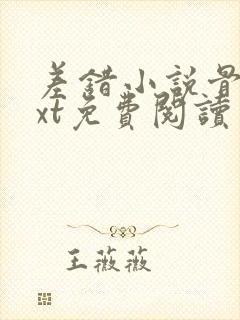 差錯小説最
xt免費閱讀
王薇薇